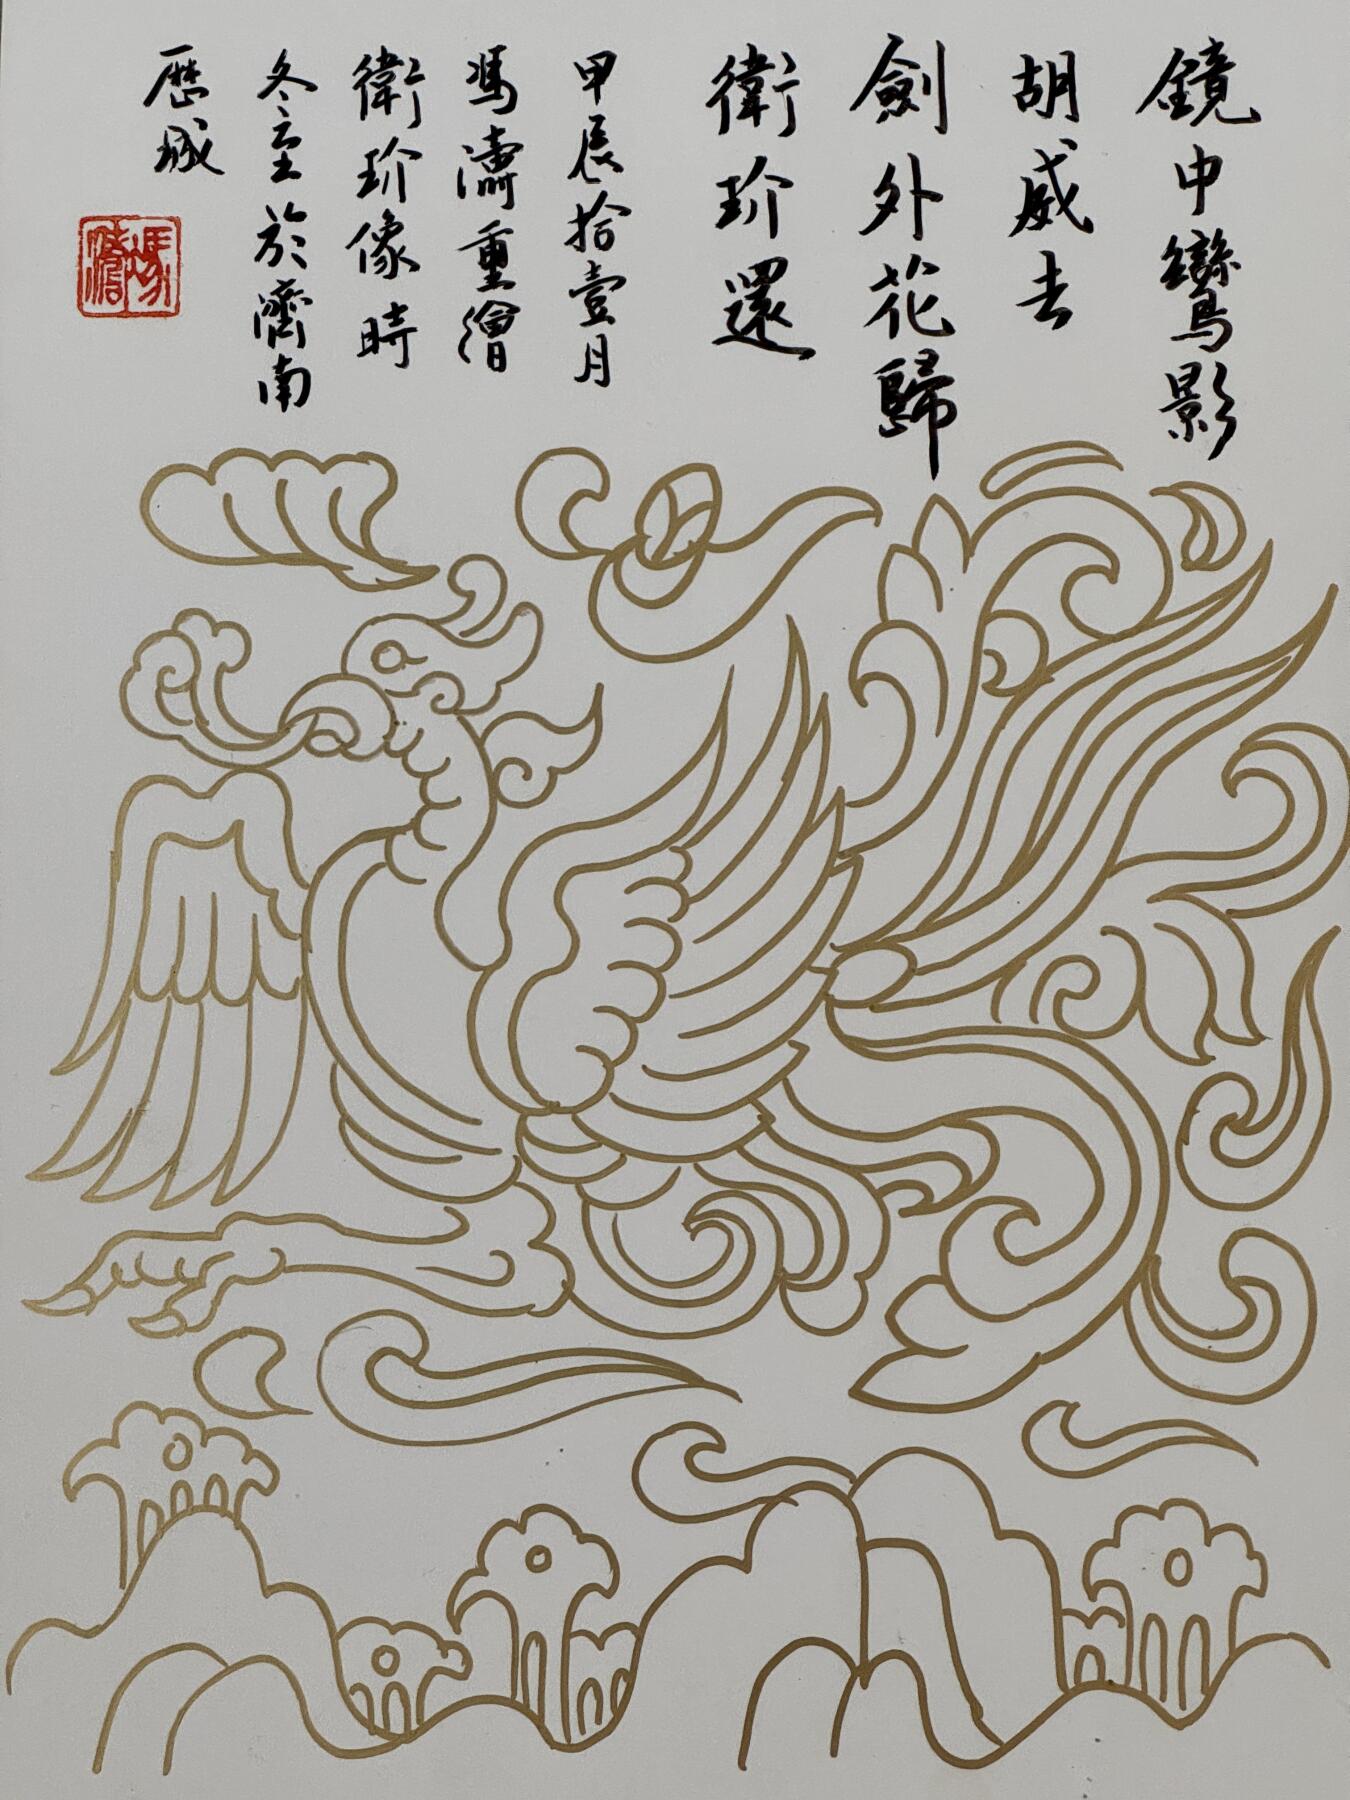 鏡中鸞影
胡威去
劍外花歸
衛玠還
甲辰拾壹月
馮濤重繪
衛玠像時
冬至於濟南
歷城